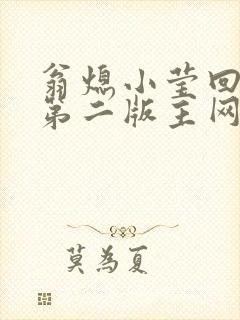 翁熄小莹回
第二版主网
莫為夏